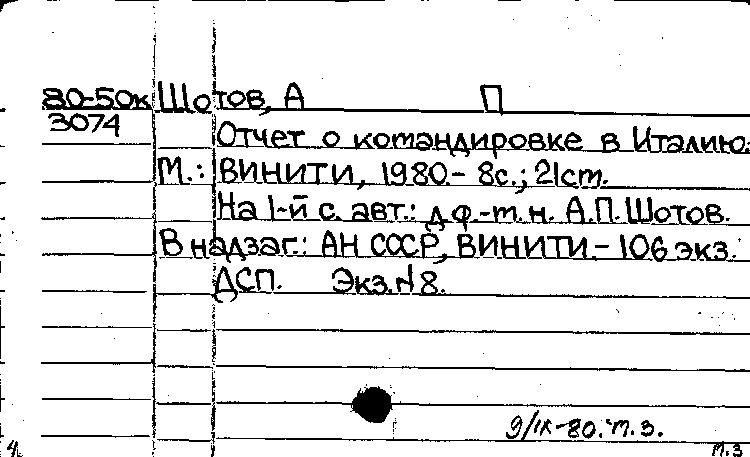 80-50к Шотов, А П
3074
Отчет о командировке в Италию.
М.: ВИНИТИ, 1980.- 8с.; 21ст.
На 1-й с. авт.: д.ф.-т.н. А.П. Шотов.
В надзаг.: АН СССР, ВИНИТИ.- 106 экз.
ДСП. Экз.№8.
9/IX-80. т.з.
т.з